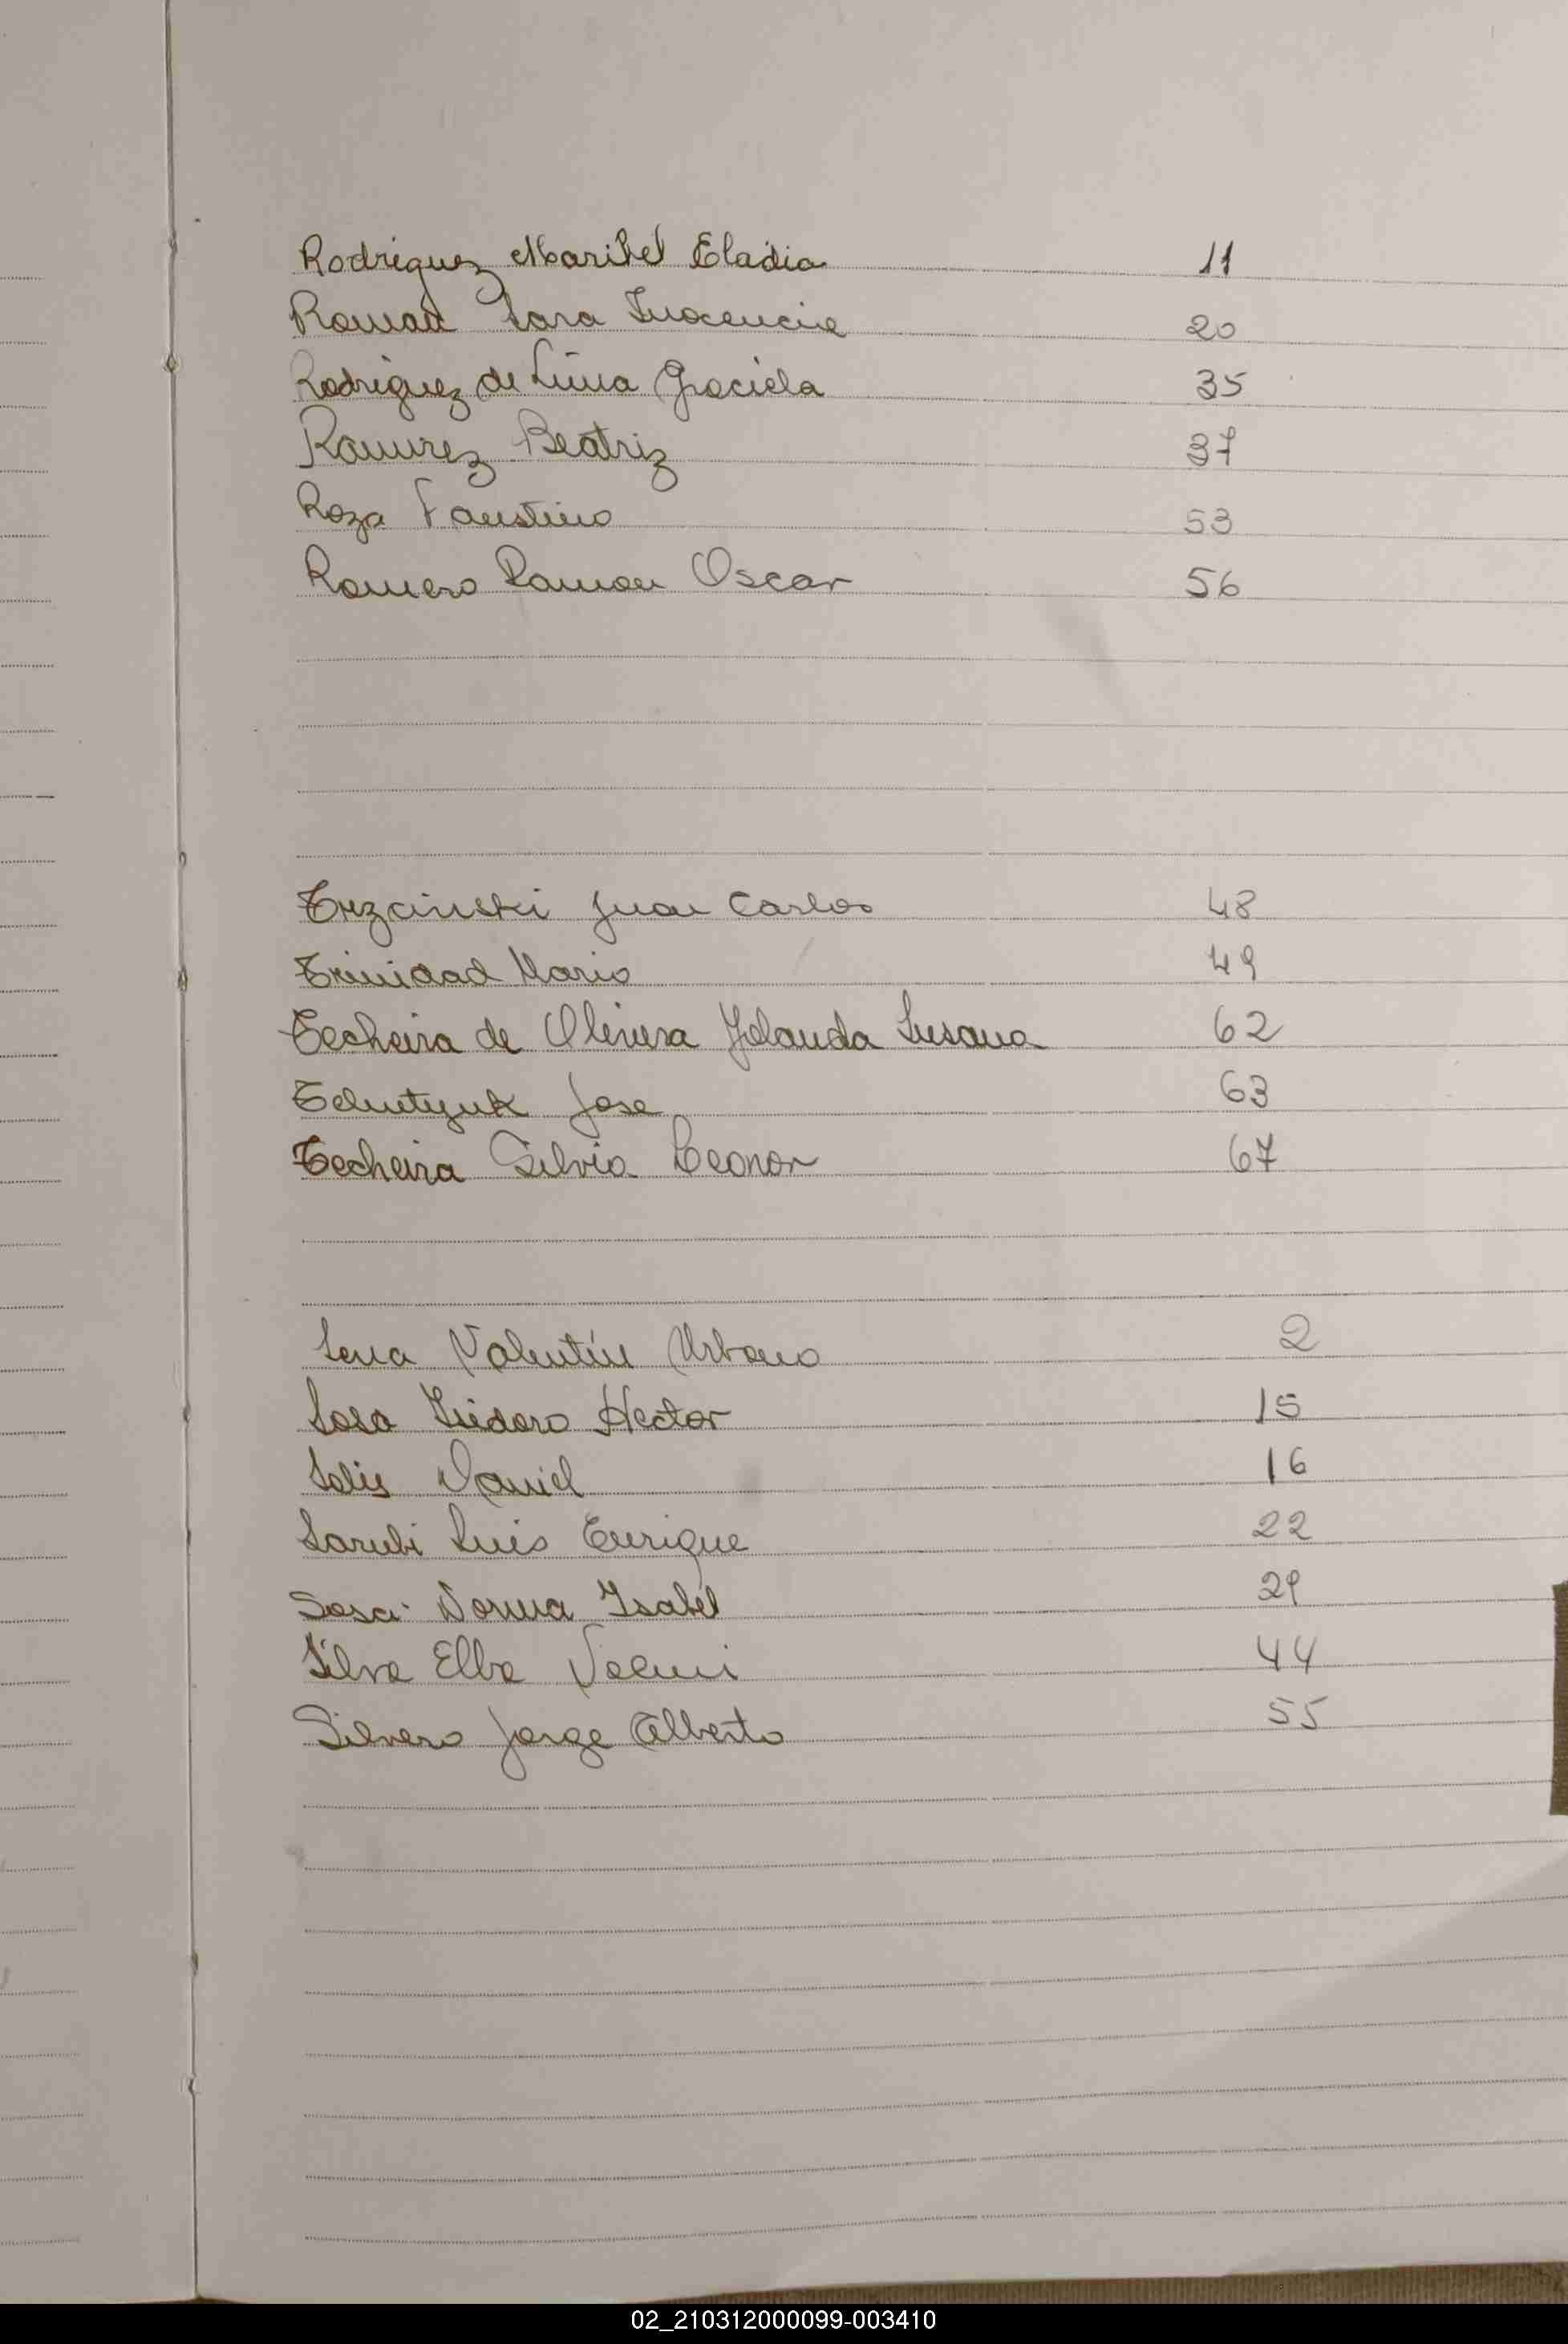 Rodriguez Maribel Eladia 11
Roman Sara Inocencia 20
Rodriguez de Lima Graciela 35
Ramirez Beatriz 37
Roza Faustino 53
Romero Ramon Oscar 56
Trzcinski Juan Carlos 48
Trinidad Mario 49
Techeira de Olivera Yolanda Susana 62
Jose 63
Techeira Silvia Leonor 67
Sena Valentín Urbano 2
Sosa Isidoro Hector 15
Solis Daniel 16
Sarubi Luis Enrique 22
Sosa Norma Isabel 29
Silva Elba Noemi 44
Silvero Jorge Alberto 55
02_210312000099-003410